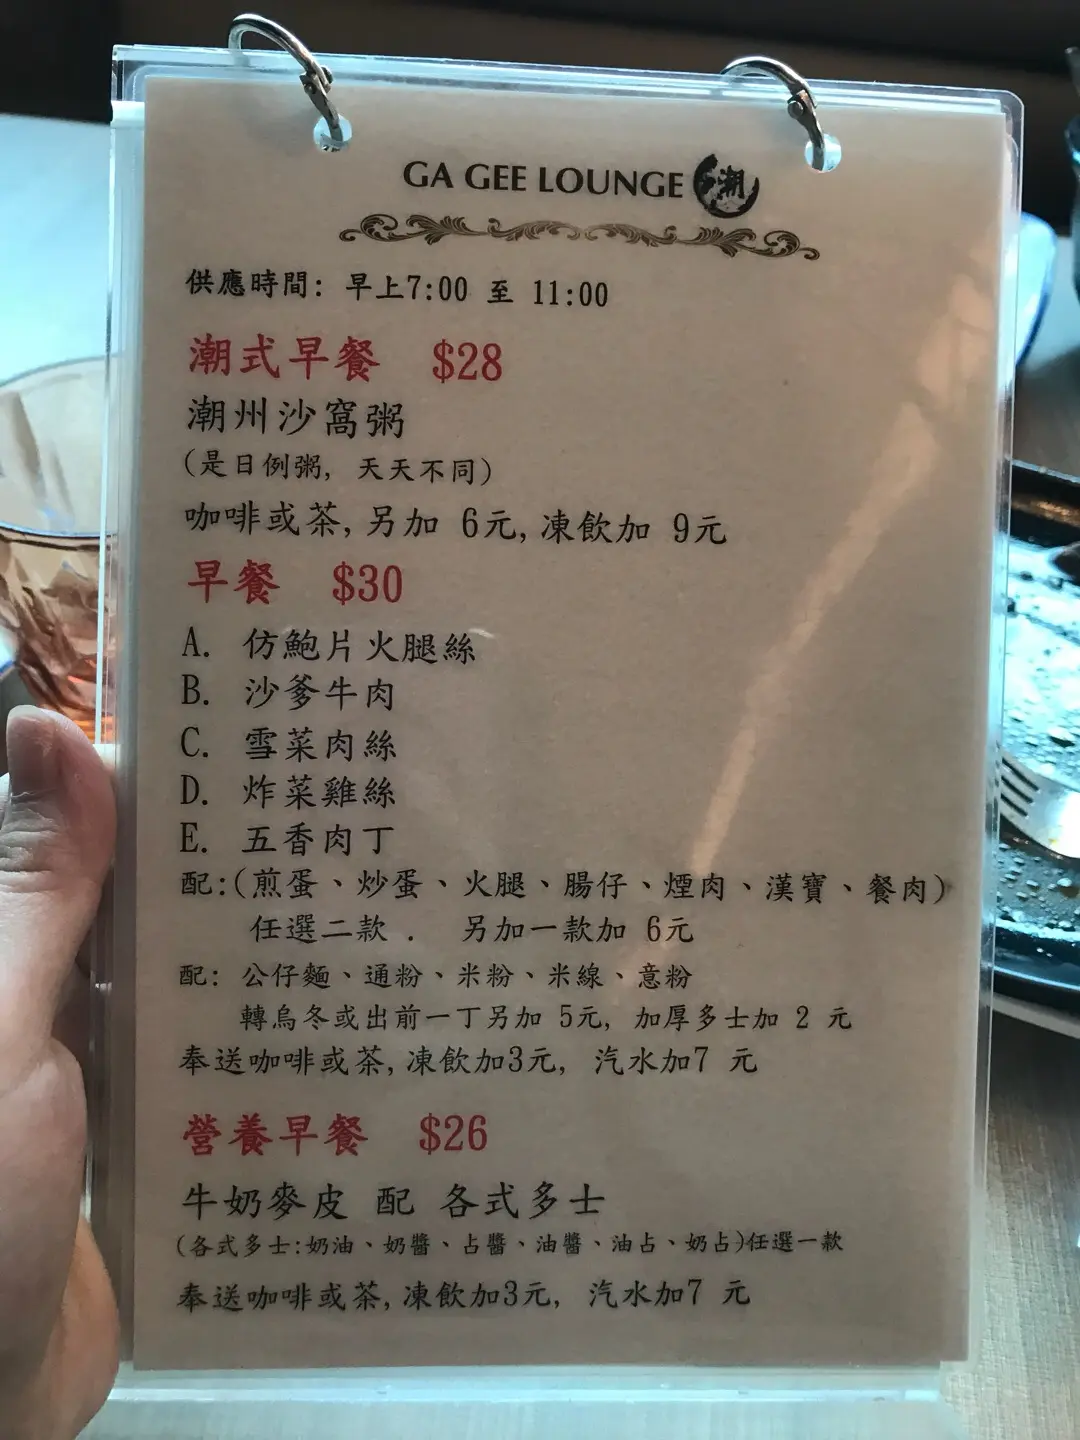 GA GEE LOUNGE 潮
供應時間: 早上7:00 至 11:00
潮式早餐 $28
潮州沙窩粥
(是日例粥, 天天不同)
咖啡或茶, 另加 6元, 凍飲加 9元
早餐 $30
A. 仿鮑片火腿絲
B. 沙爹牛肉
C. 雪菜肉絲
D. 炸菜雞絲
E. 五香肉丁
配:(煎蛋、炒蛋、火腿、腸仔、煙肉、漢寶、餐肉)
任選二款 . 另加一款加 6元
配: 公仔麵、通粉、米粉、米線、意粉
轉烏冬或出前一丁另加 5元, 加厚多士加 2 元
奉送咖啡或茶, 凍飲加3元, 汽水加7 元
營養早餐 $26
牛奶麥皮 配 各式多士
(各式多士:奶油、奶醬、占醬、油醬、油占、奶占)任選一款
奉送咖啡或茶, 凍飲加3元, 汽水加7 元